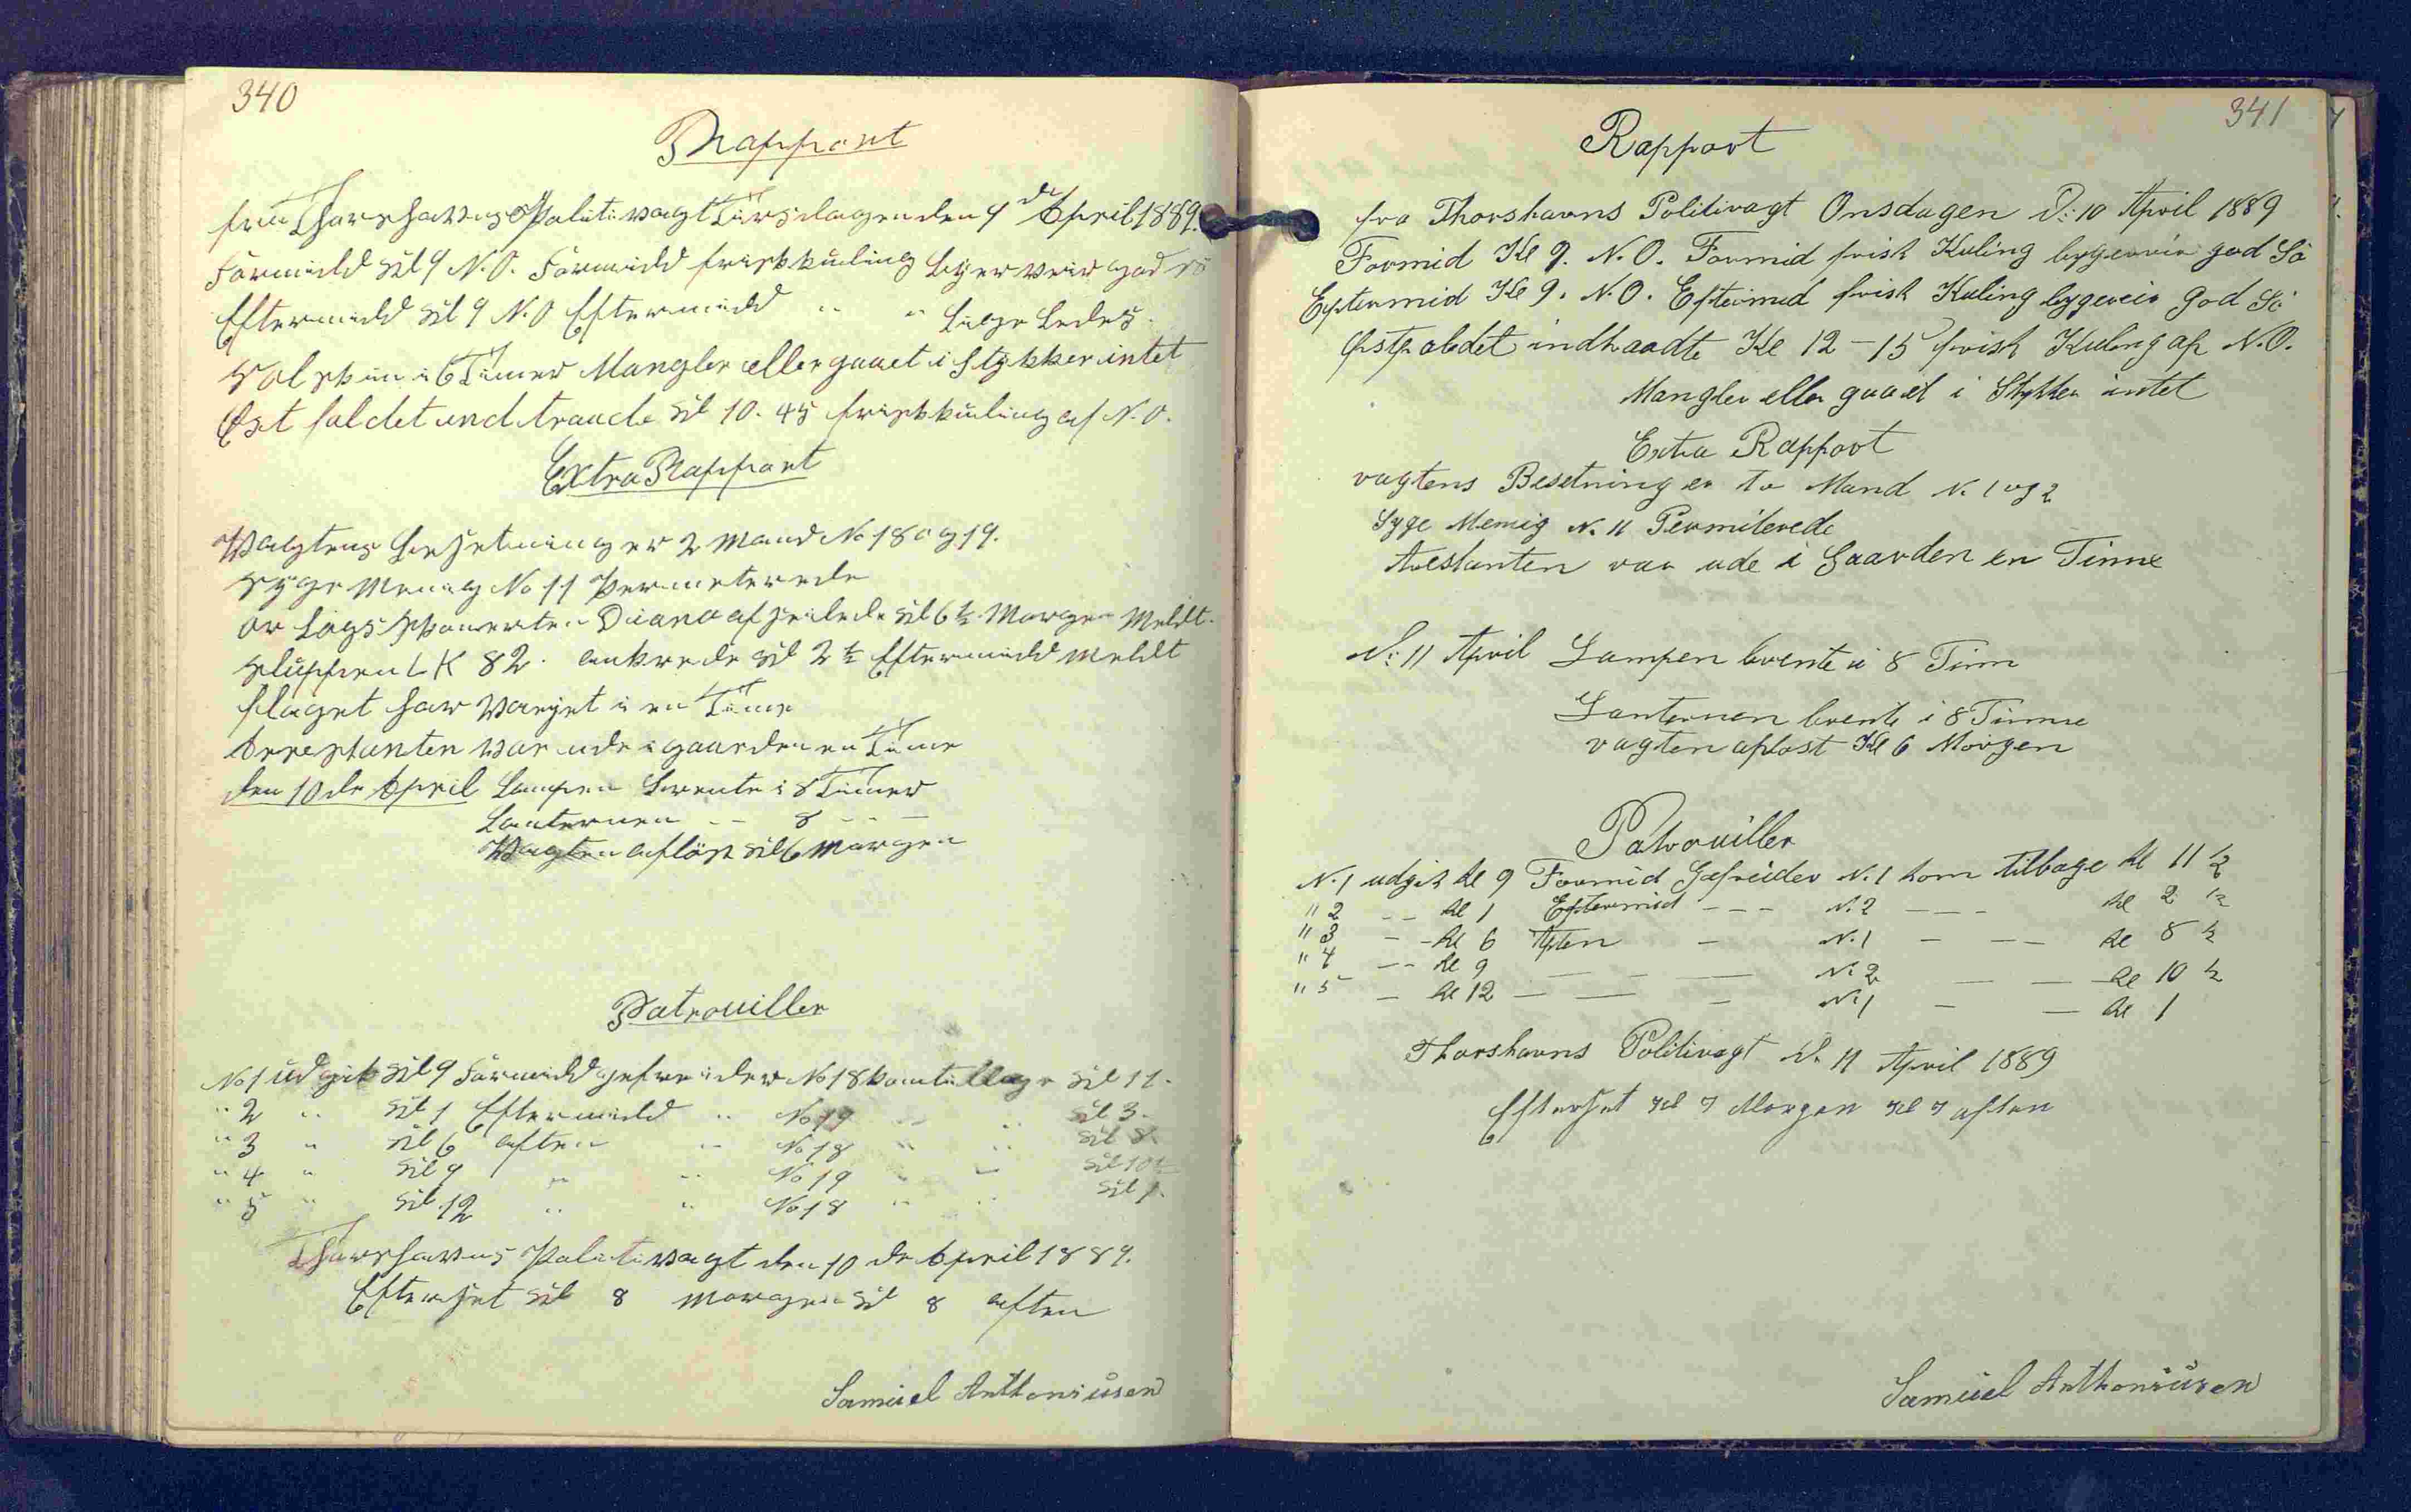 340
Rapport
fra Thorshavns Politivagt Tirsdagen den 9de April 1889.
Formidd Kl 9 N.O. Formidd frisk kuling Byerveir god sö
Eftermidd Kl 9 N.O Eftermidd " " Lige Ledes.
Solskin i 6 Timer Mangler eller gaaet i Stykker intet
Øst faldet indtraade Kl 10.45 frisk kuling af N.O.
Extra Rapport
Vagtens Besetning er 2 Mand No 18 og 19.
Syge Menig No 11 Permeterede
or Logs Skonerten Diana afseilede Kl 6½ Morgen Meldt.
Sluppen LK 82. ankrede Kl 2½ Eftermidd Meldt
flaget har Vaejet i en Time
Arrestanten var ude i gaarden en Time
den 10de April Lampen Brente i 8 Timer
Lanternen - - 8 - - -
Vagten aflöst Kl 6 Morgen
Patrouiller
No 1 udgik Kl 9 Formidd gefreider No 18 kom tilbage Kl 11.
" 2 " Kl 1 Eftermidd " No 19 " " Kl 3.
" 3 " Kl 6 aften " No 18 " " Kl 8.
" 4 " Kl 9 " " No 19 " " Kl 10½
" 5 " Kl 12 " " No 18 " " Kl 1.
Thorshavns Politivagt den 10de April 1889.
Efterset Kl 8 Morgen Kl 8 aften
Samúel Anthoniúsen
341
Rapport
fra Thorshavns Politivagt Onsdagen D: 10 April 1889
Formid Kl 9. N.O. Formid frisk Kuling bygeveir god Sö
Eftermid Kl 9. N.O. Eftermid frisk Kuling bygeveir God Sö
Østfaldet indtraadte Kl 12-15 frisk Kuling af N.O.
Mangler eller gaaet i Stykker intet
Extra Rapport
vagtens Besetning er to Mand N. 1 og 2
Syge Menig N. 11 Permiterede
Arestanten var ude i Gaarden en Time
D: 11 April Lampen brente i 8 Time
Lanternen brente i 8 Timme
vagten aflöst Kl 6 Morgen
Patrouiller
N. 1 udgik Kl 9 Formid Gefreider N. 1 kom tilbage Kl 11 ½
" 2 - - Kl 1 Eftermid - - - N. 2 - - - Kl 2 ½
" 3 - - Kl 6 Aften - N. 1 - - - Kl 8 ½
" 4 - - Kl 9 - - - N. 2 - - Kl 10 ½
" 5 - Kl 12 - - - N. 1 - - Kl 1
Thorshavns Politivagt D. 11 April 1889
Efterset Kl 7 Morgen Kl 7 aften
Samúel Anthoniúsen